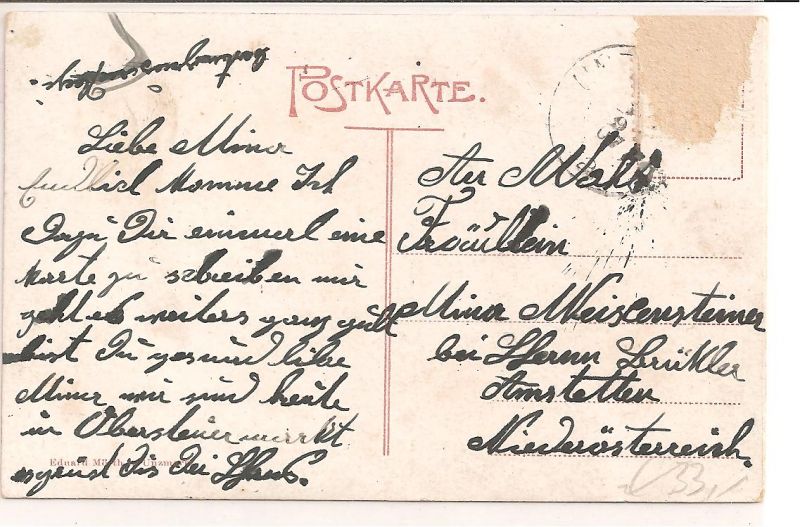 POSTKARTE.
Liebe Mina
Endlich komme Ich
Dazu Dir einmerl eine
Karte zu schreiben mir
geht es weiters ganz gutt
bist Du gesund liebe
Mina wir sind heute
in Obersteuermarkt
es grüst Dis Dei Hans.
Eduard
Unzmarkt
An Wald
Fräullein
Mina Weisensteiner
bei Herrn Brükler
Amstetten
Niederösterreich.